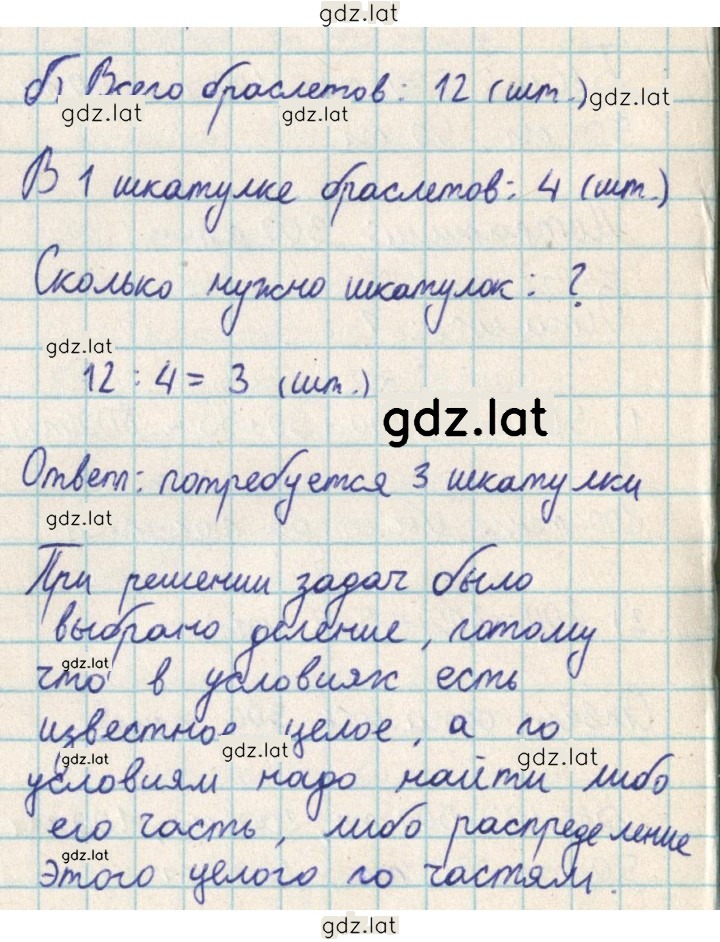 gdz.lat
б) Всего браслетов: 12 (шт.)
gdz.lat gdz.lat gdz.lat
В 1 шкатулке браслетов: 4 (шт.)
Сколько нужно шкатулок: ?
gdz.lat
12 : 4 = 3 (шт.)
gdz.lat
Ответ: потребуется 3 шкатулки
gdz.lat
При решении задач было
выбрано деление, потому
gdz.lat
что в условиях есть
известное целое, а по
gdz.lat gdz.lat gdz.lat
условиям надо найти либо
его часть, либо распределение
gdz.lat
этого целого по частям.
gdz.lat